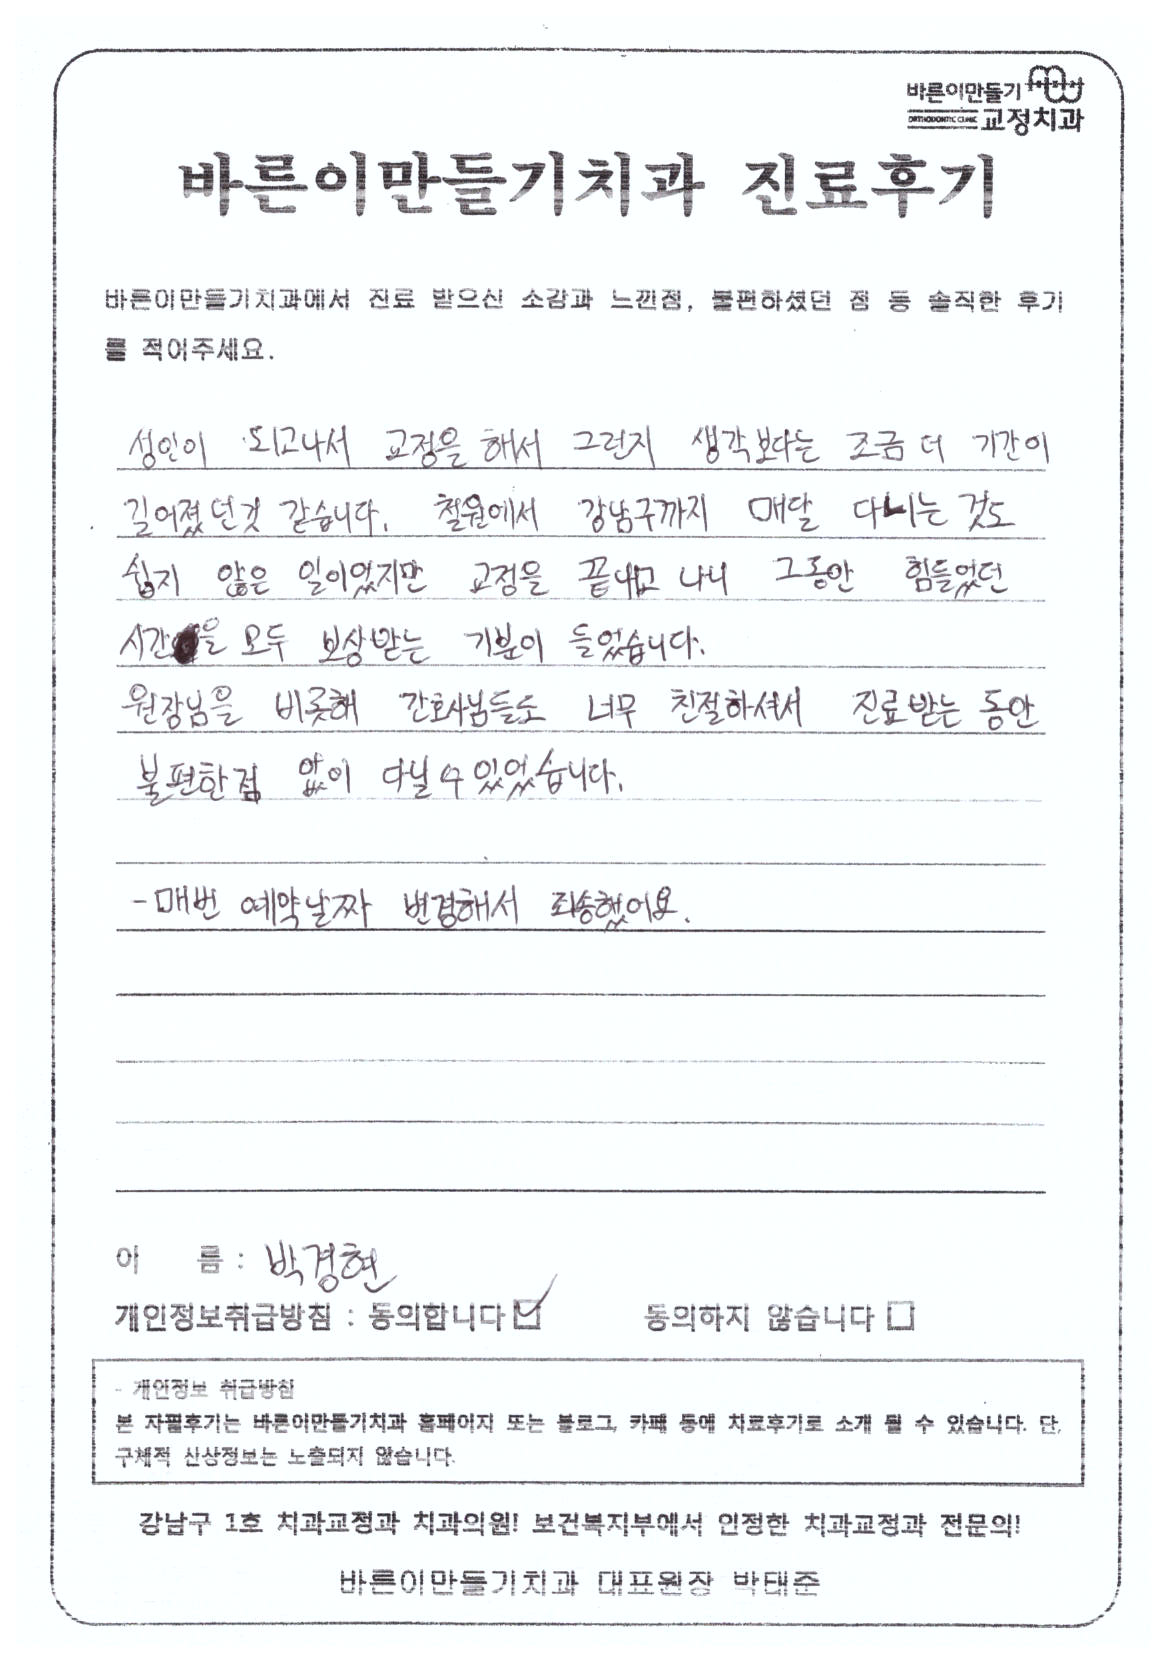 바른이만들기
ORTHODONTIC CLINIC 교정치과
바른이만들기치과 진료후기
바른이만들기치과에서 진료 받으신 소감과 느낀점, 불편하셨던 점 등 솔직한 후기
를 적어주세요.
성인이 되고나서 교정을 해서 그런지 생각보다는 조금 더 기간이
길어졌던것 같습니다. 철원에서 강남구까지 매달 다니는 것도
쉽지 않은 일이었지만 교정을 끝내고 나니 그동안 힘들었던
시간을 모두 보상받는 기분이 들었습니다.
원장님을 비롯해 간호사님들도 너무 친절하셔서 진료받는 동안
불편한점 없이 다닐 수 있었습니다.
- 매번 예약날짜 변경해서 죄송했어요.
이 름 : 박경현
개인정보취급방침 : 동의합니다 동의하지 않습니다
- 개인정보 취급방침
본 자필후기는 바른이만들기치과 홈페이지 또는 블로그, 카페 등에 치료후기로 소개 될 수 있습니다. 단,
구체적 신상정보는 노출되지 않습니다.
강남구 1호 치과교정과 치과의원! 보건복지부에서 인정한 치과교정과 전문의!
바른이만들기치과 대표원장 박태준